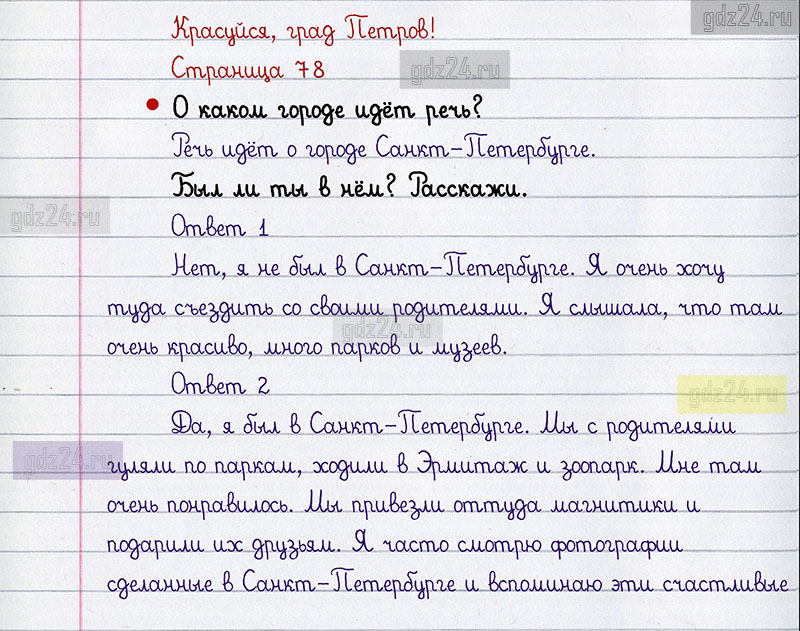 gdz24.ru
Красуйся, град Петров!
Страница 78
gdz24.ru
О каком городе идёт речь?
Речь идёт о городе Санкт-Петербурге.
Был ли ты в нём? Расскажи.
gdz24.ru
Ответ 1
Нет, я не был в Санкт-Петербурге. Я очень хочу
туда съездить со своими родителями. Я слышала, что там
gdz24.ru
очень красиво, много парков и музеев.
Ответ 2
gdz24.ru
Да, я был в Санкт-Петербурге. Мы с родителями
gdz24.ru
гуляли по паркам, ходили в Эрмитаж и зоопарк. Мне там
очень понравилось. Мы привезли оттуда магнитики и
подарили их друзьям. Я часто смотрю фотографии
сделанные в Санкт-Петербурге и вспоминаю эти счастливые